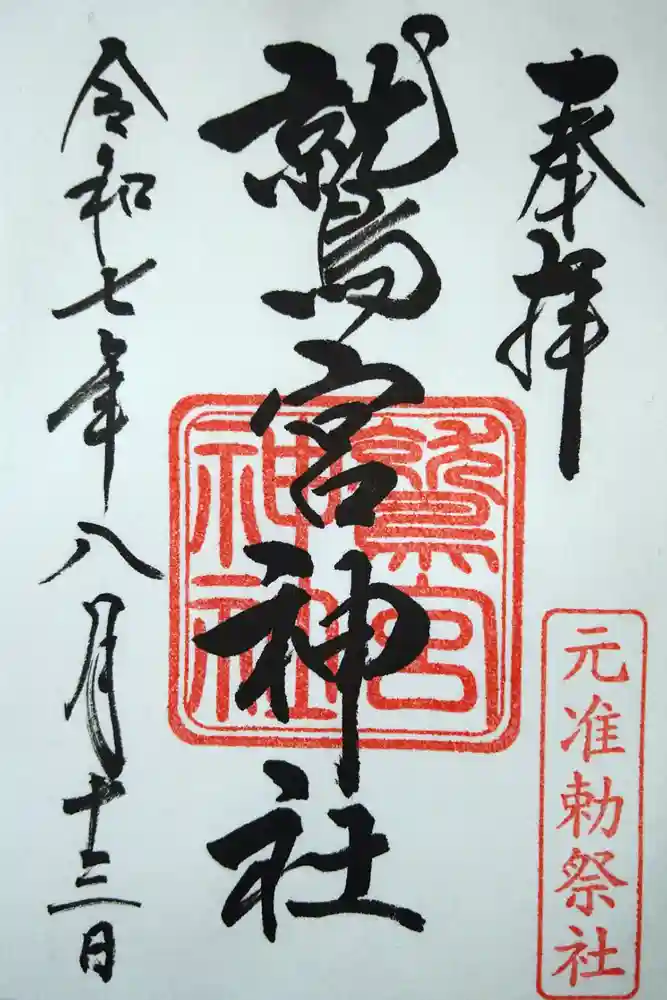 奉拝
元准勅祭社
鷲宮神社
鷲宮
神社
令和七年八月十三日